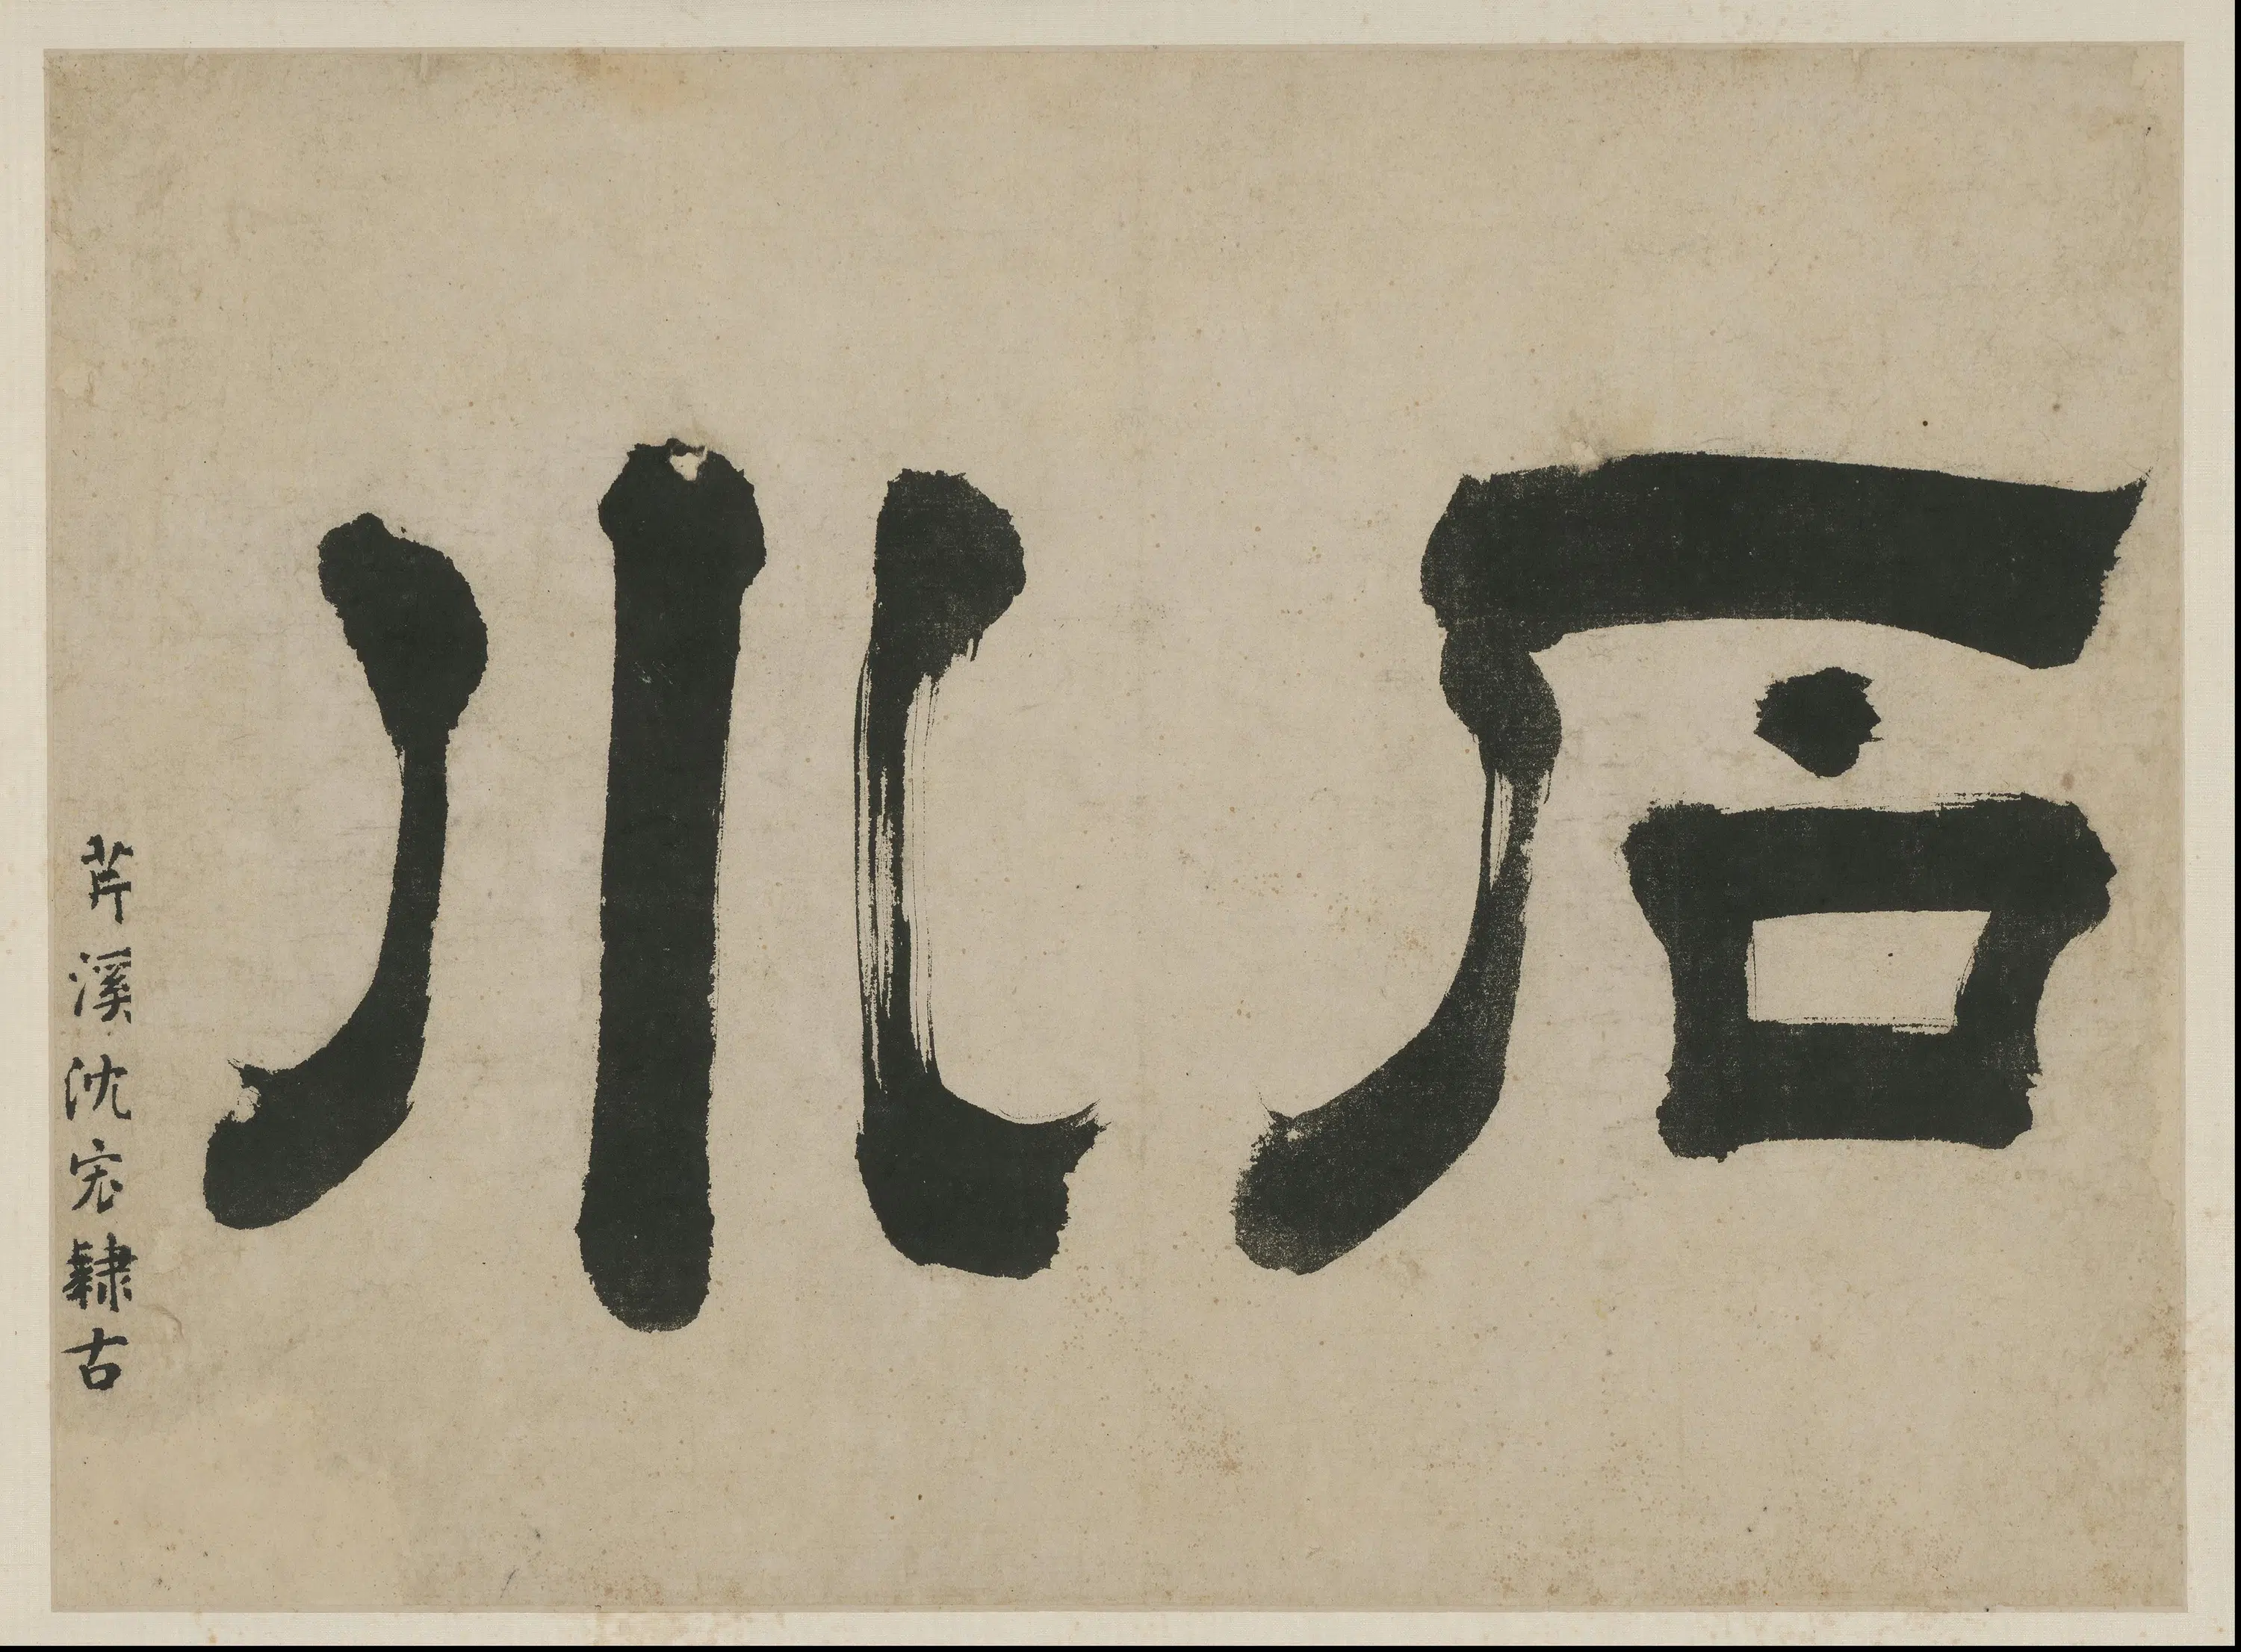 石川
芹溪沈宏隸古